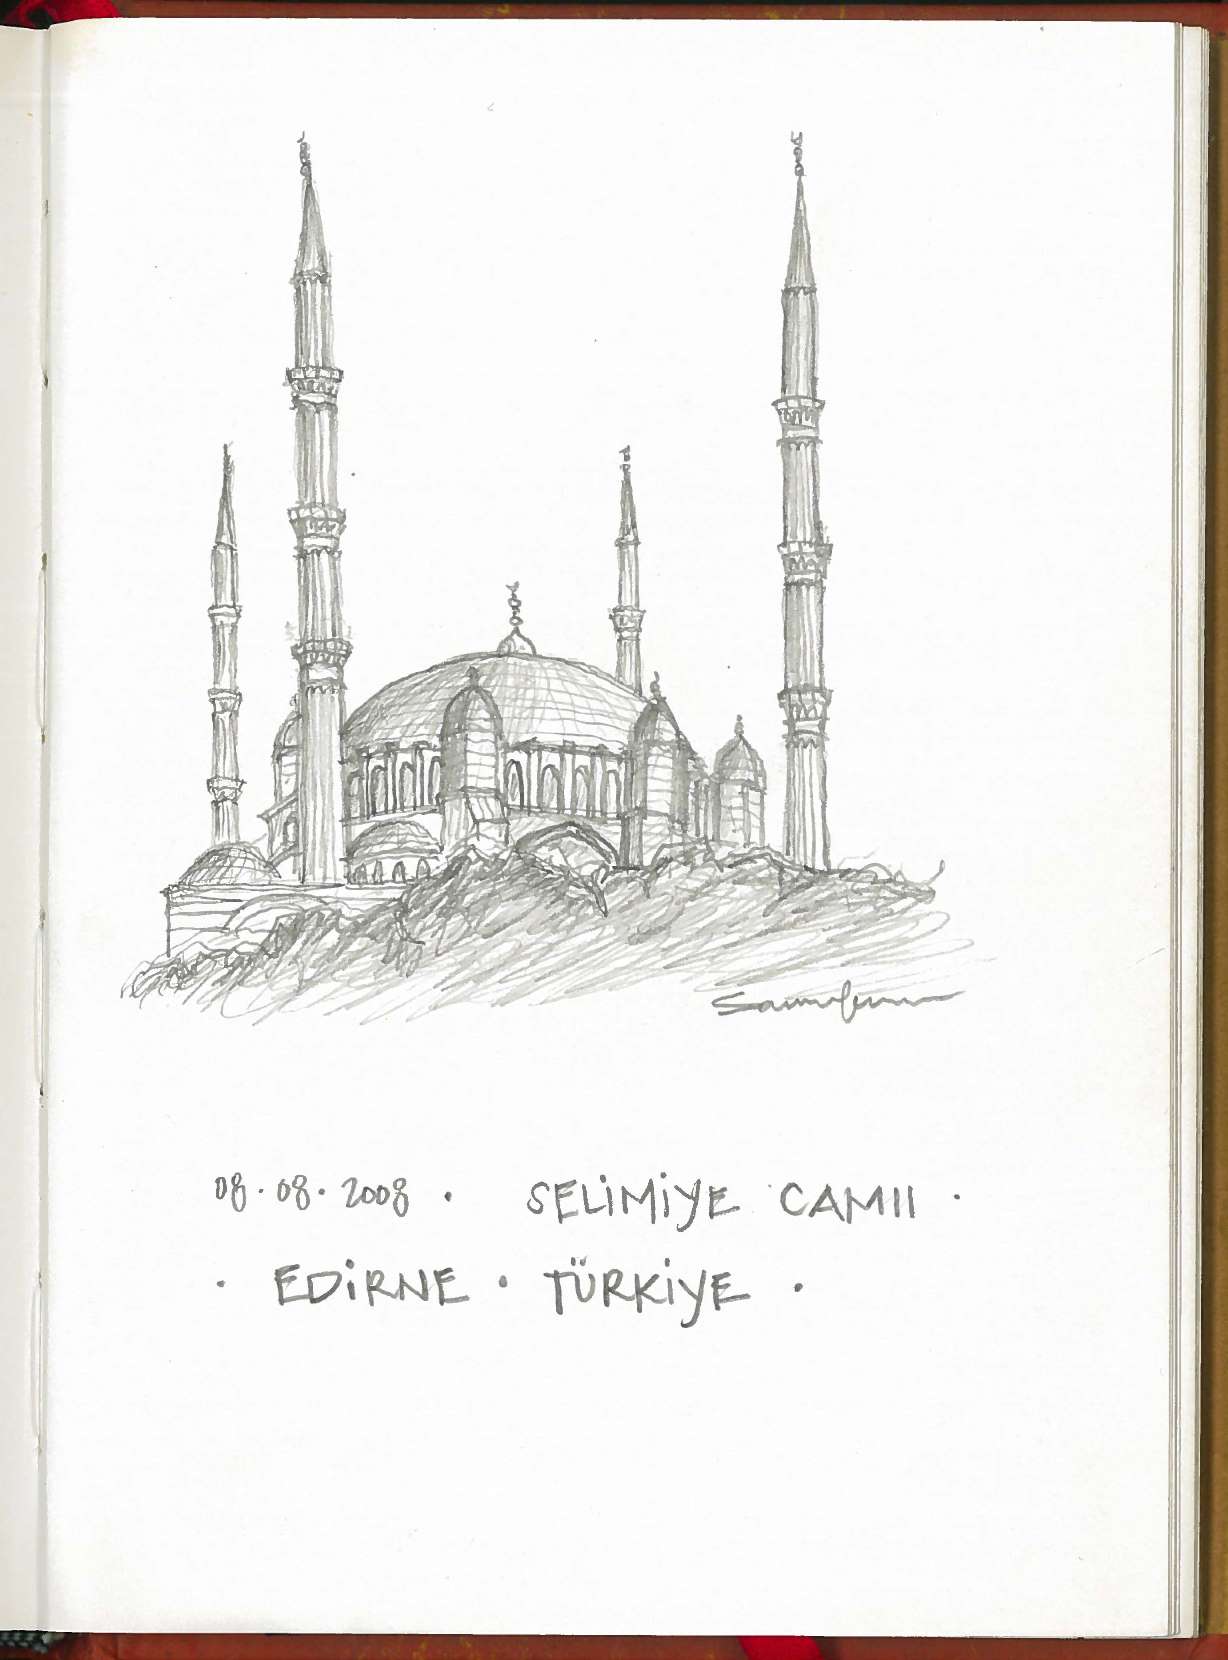 08.08.2008 . SELİMİYE CAMII .
. EDİRNE . TÜRKİYE .